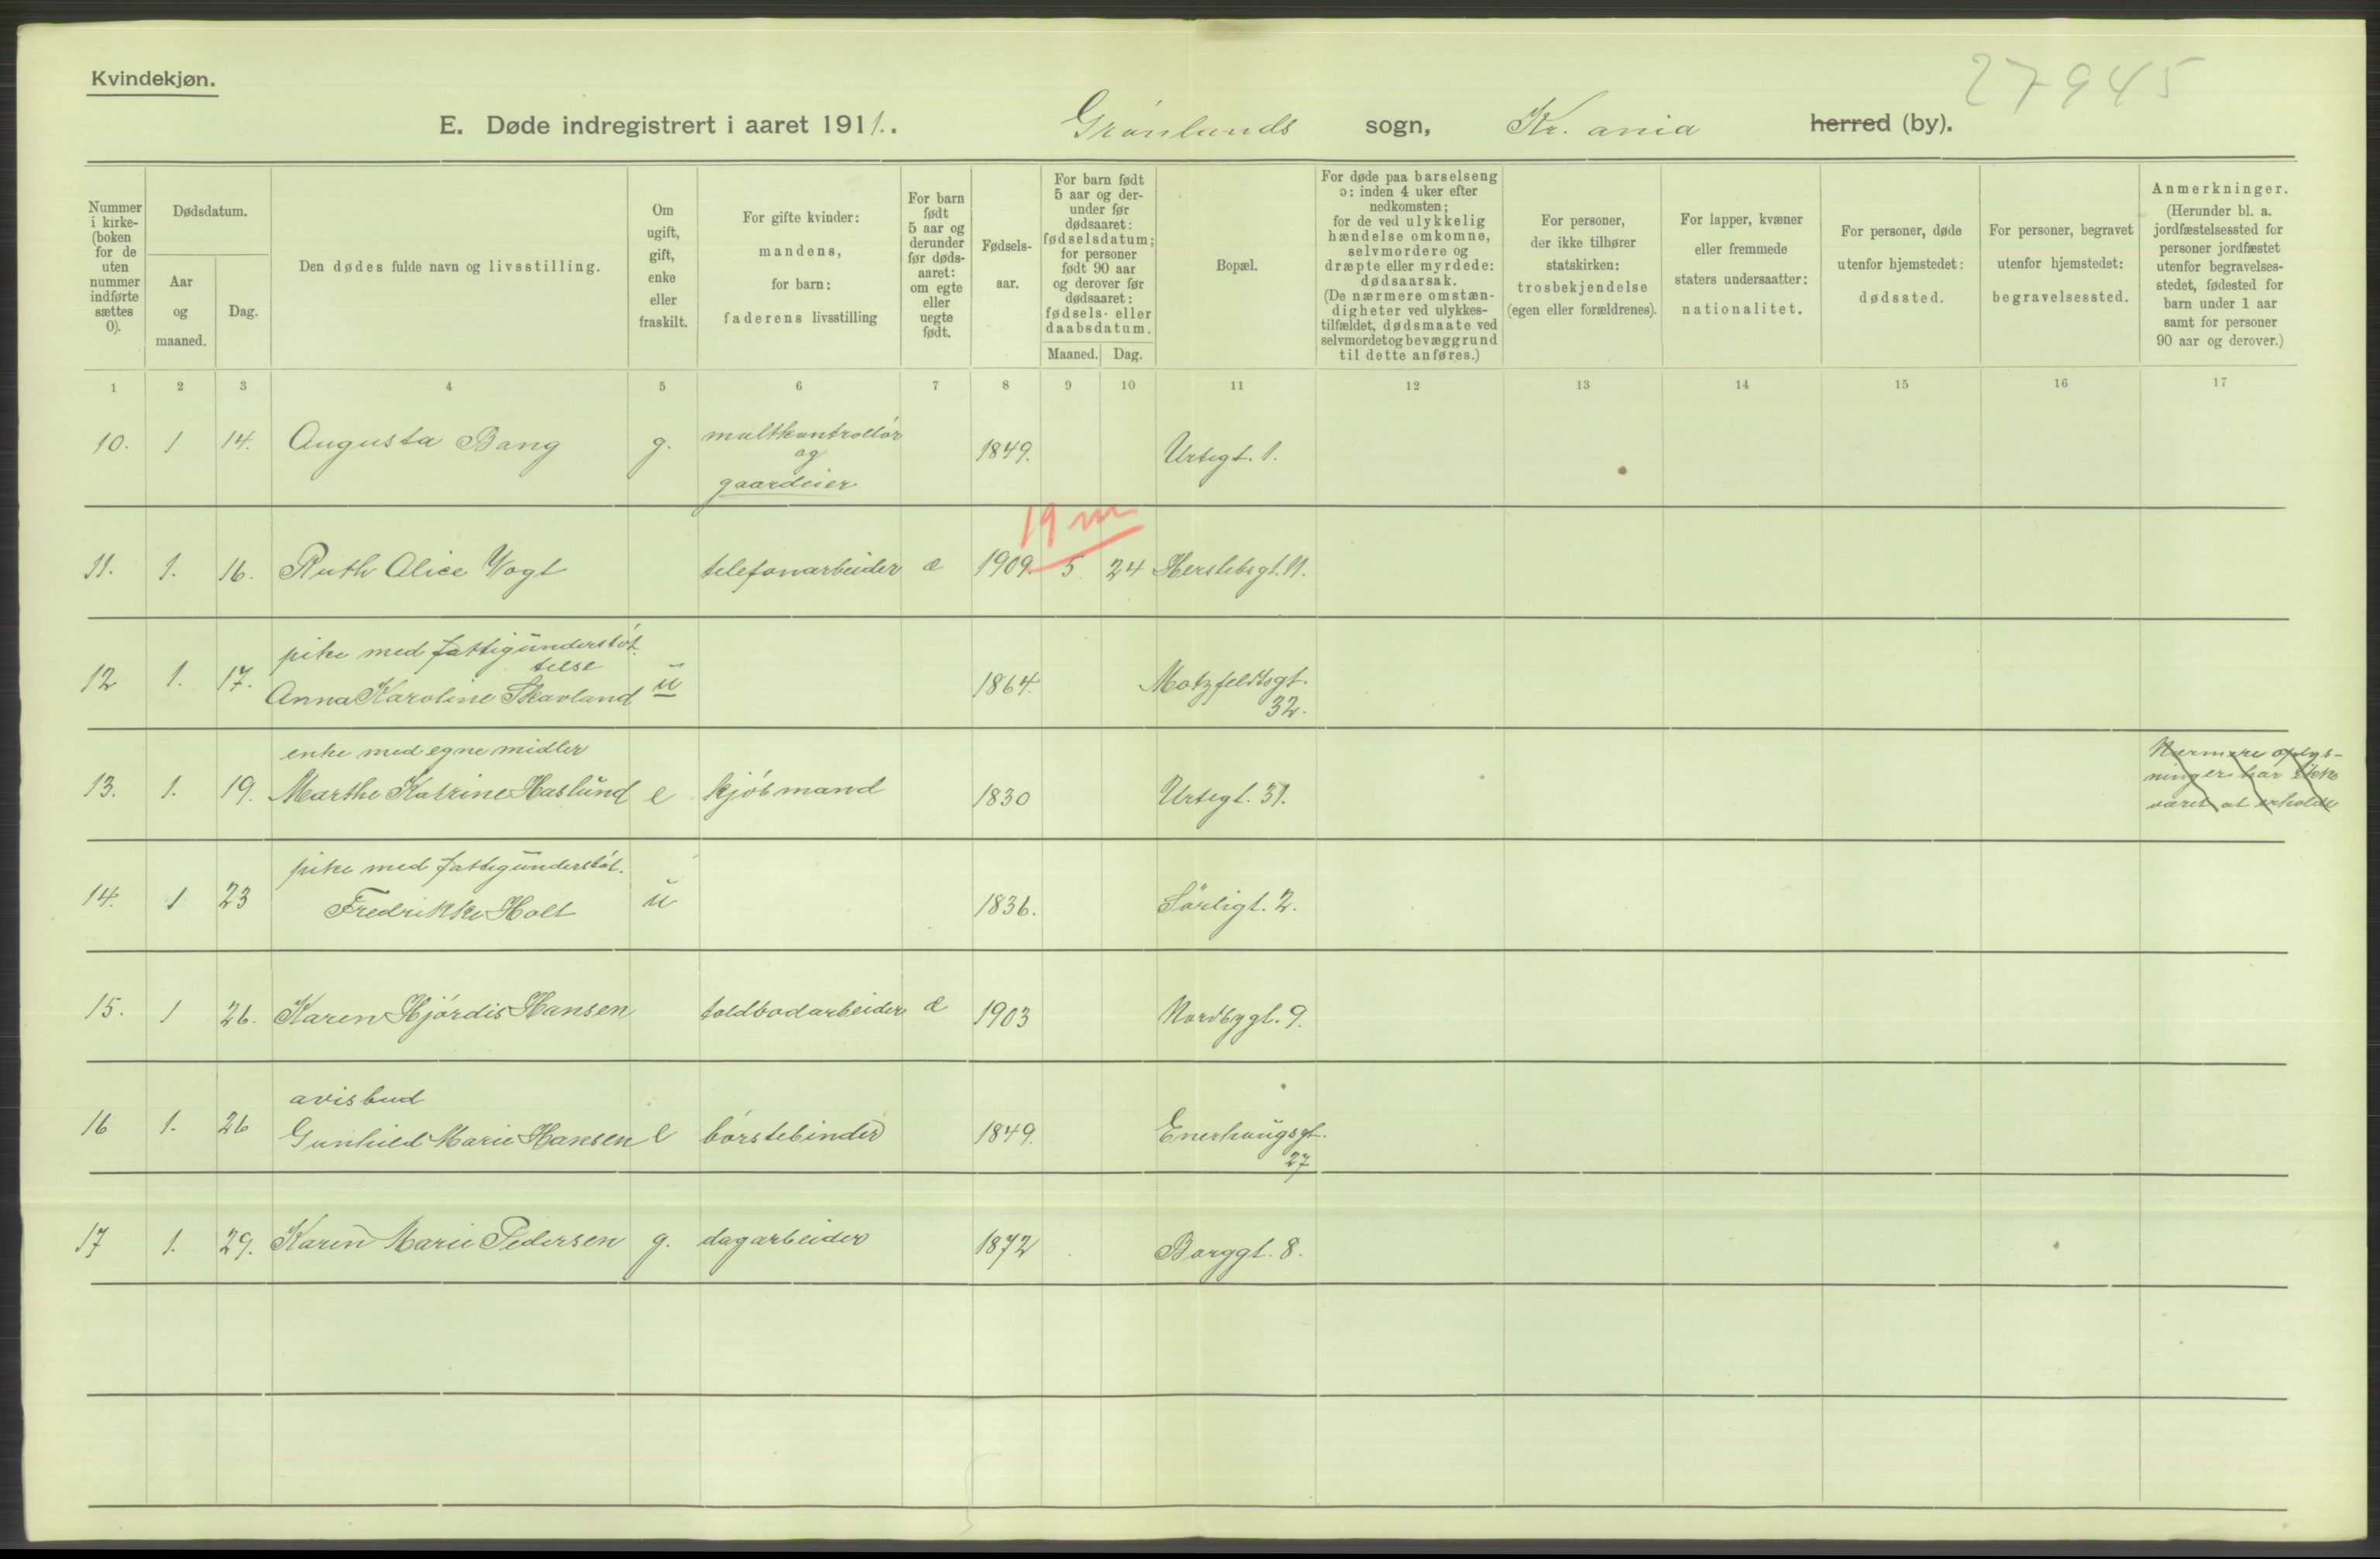 Kvindekjøn.
27945
E. Døde indregistrert i aaret 1911.. Grønlands sogn, Kr. ania herred (by).
Nummer i kirke-(boken for de uten nummer indførte sættes 0).
Dødsdatum.
Aar og maaned.
Dag.
Den dødes fulde navn og livsstilling.
Om ugift, gift, enke eller fraskilt.
For gifte kvinder: mandens, for barn: faderens livsstilling
For barn født 5 aar og derunder før døds-aaret: om egte eller uegte født.
Fødsels-aar.
For barn født 5 aar og der-under før dødsaaret: fødselsdatum; for personer født 90 aar og derover før dødsaaret: fødsels- eller daabsdatum.
Maaned. Dag.
Bopæl.
For døde paa barselseng ɔ: inden 4 uker efter nedkomsten; for de ved ulykkelig hændelse omkomne, selvmordere og dræpte eller myrdede: dødsaarsak. (De nærmere omstæn-digheter ved ulykkes-tilfældet, dødsmaate ved selvmordet og bevæggrund til dette anføres.)
For personer, der ikke tilhører statskirken: trosbekjendelse (egen eller forældrenes).
For lapper, kvæner eller fremmede staters undersaatter: nationalitet.
For personer, døde utenfor hjemstedet: dødssted.
For personer, begravet utenfor hjemstedet: begravelsessted.
Anmerkninger. (Herunder bl. a. jordfæstelsessted for personer jordfæstet utenfor begravelses-stedet, fødested for barn under 1 aar samt for personer 90 aar og derover.)
1 2 3 4 5 6 7 8 9 10 11 12 13 14 15 16 17
10. 1 14. Augusta Bang g. multkontrollør og gaardeier 1849. Urtegt. 1.
19 m
11. 1. 16. Ruth Alice Vogt telefonarbeider e 1909. 5. 24 Herslebsgt. 11.
pike med fattigunderstøt.
telse
12 1. 17. Anna Karoline Skavland u 1864. Motzfeldtsgt. 32.
enke med egne midler
13. 1. 19. Marthe Katrine Haslund e kjøbmand 1830 Urtegt. 31. Nærmere oplys-
ninger har ikke
været at erholde
pike med fattigunderstøt.
14. 1 23 Fredrikke Holt u 1836. Sørligt. 2.
15. 1 26. Karen Hjørdis Hansen toldbodarbeider e 1903 Nordbygt. 9.
avisbud
16 1. 26 Gunhild Marie Hansen e børstebinder 1849. Enerhaugsgt. 27
17 1. 29. Karen Marie Pedersen g. dagarbeider 1872 Borggt. 8.